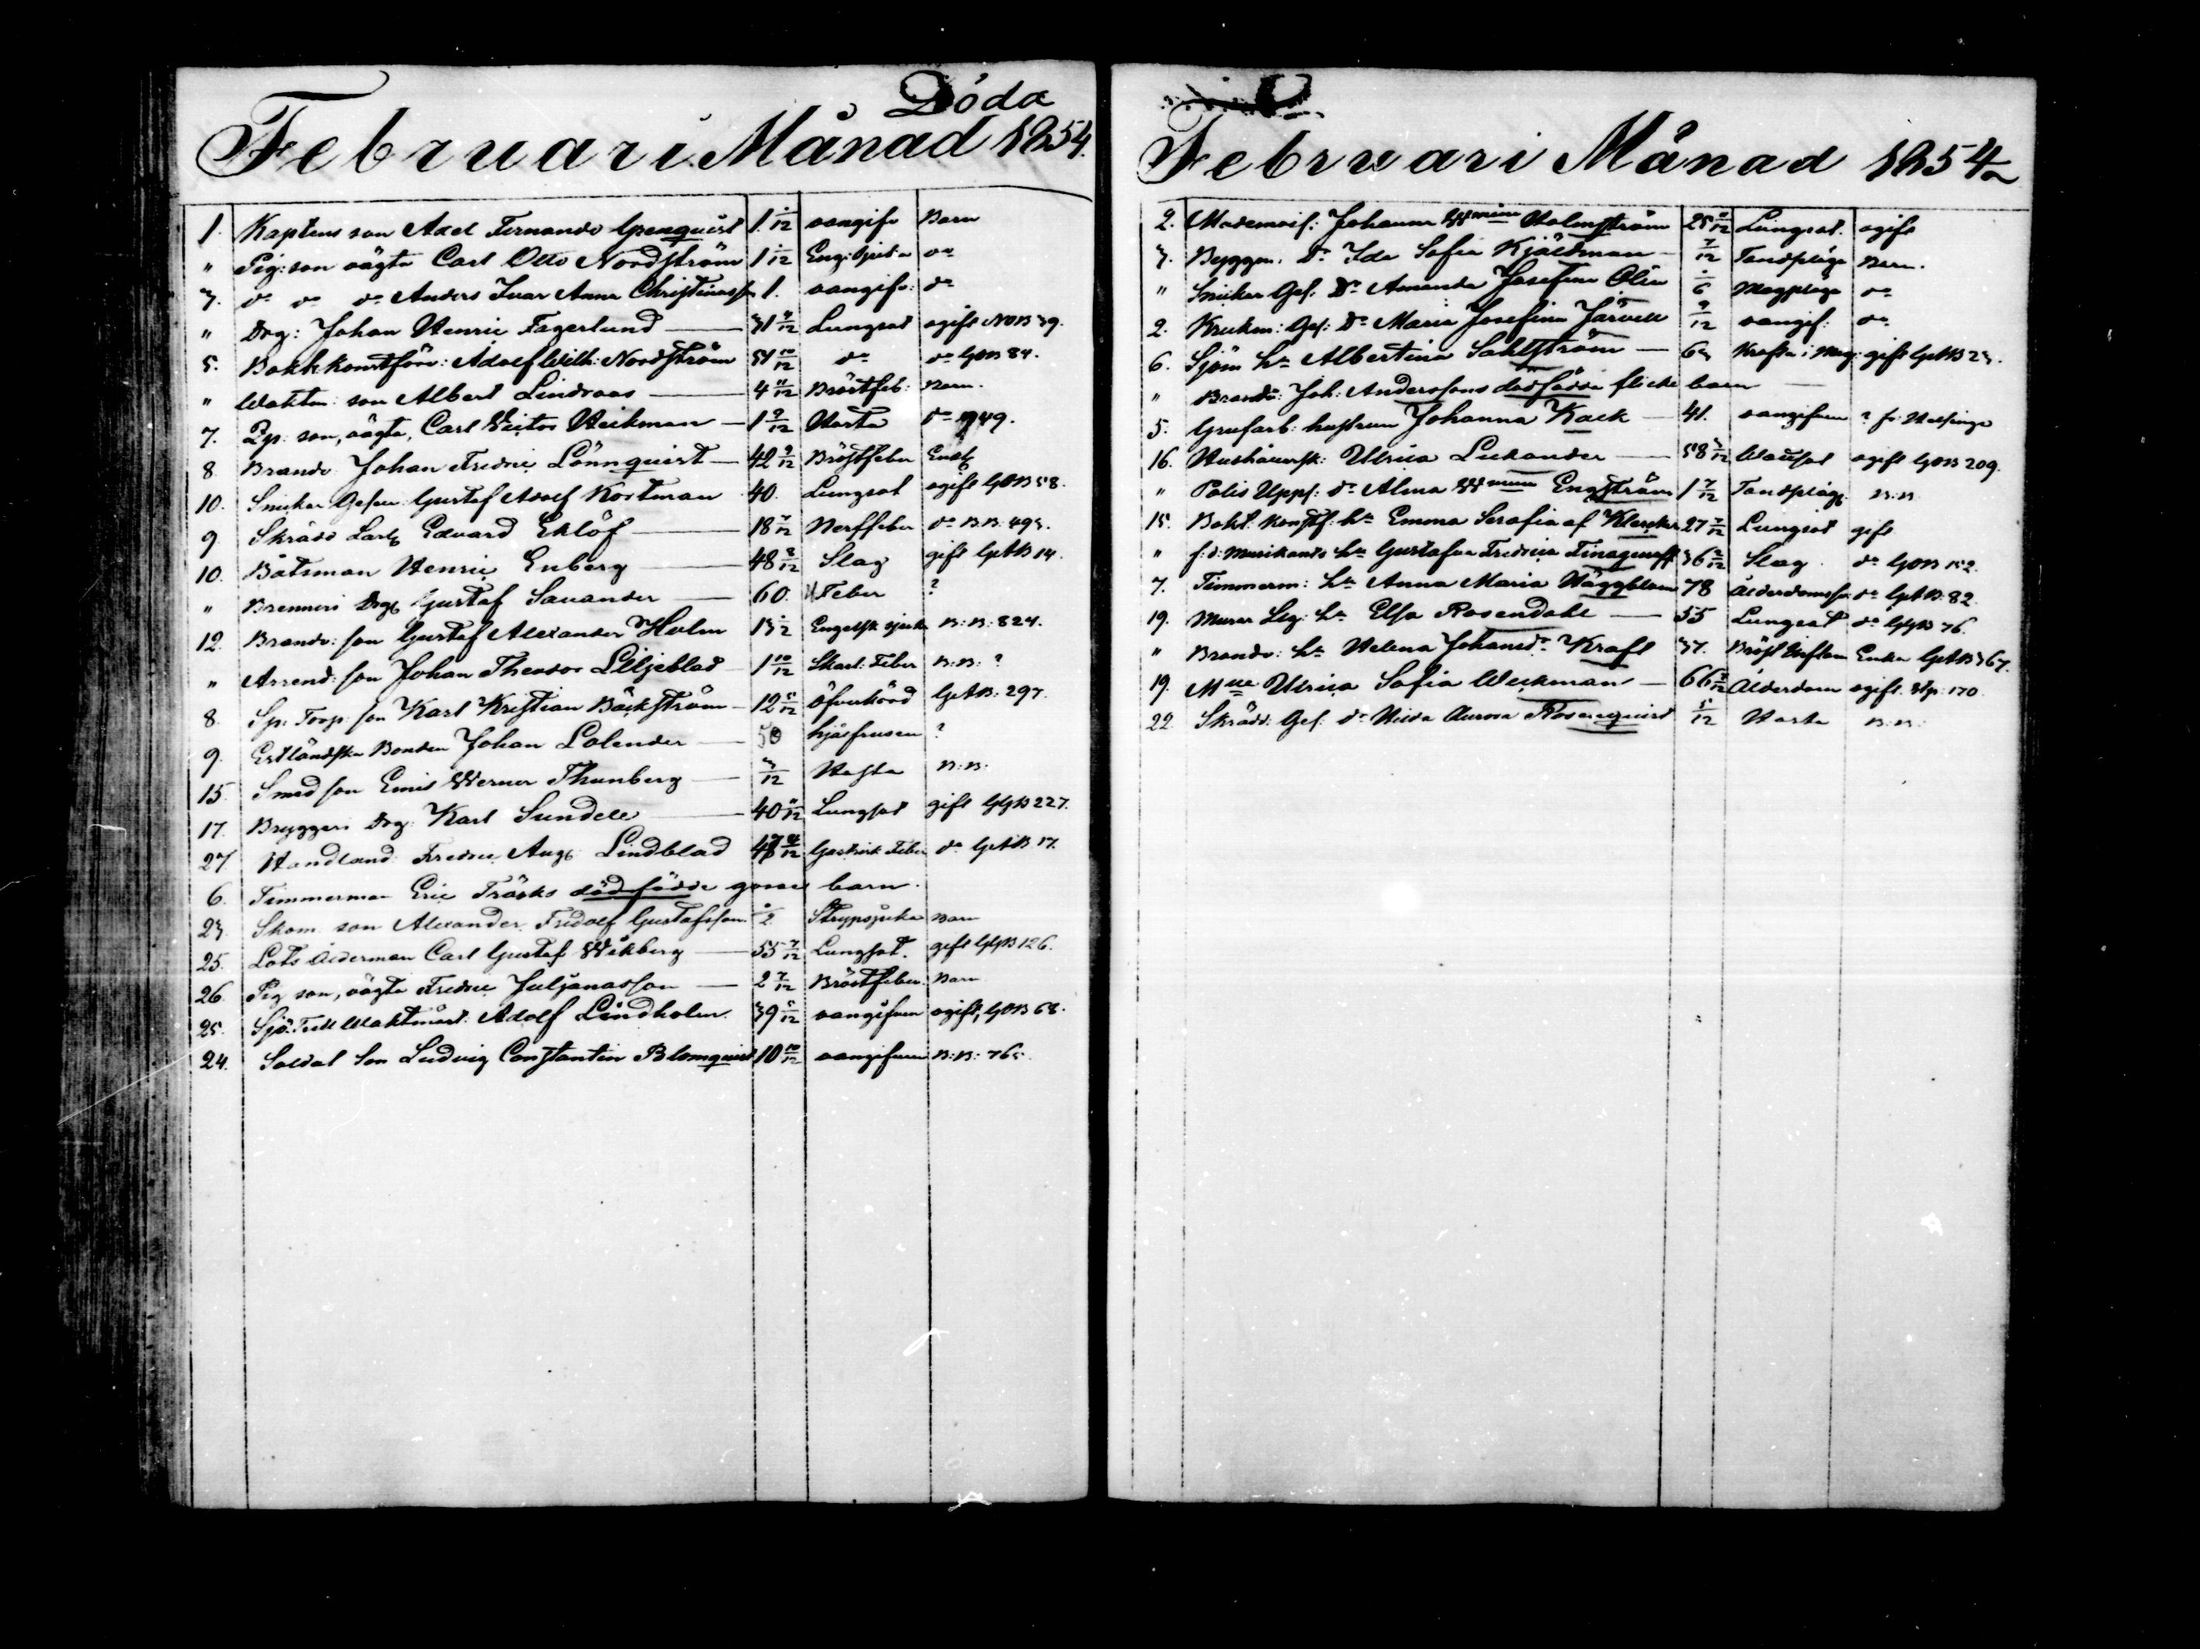 Döda
Februari Månad 1854.
1. Kaptens son Axel Fernando Grenquist 1 1/12 oangifv Barn
" Pig: son oägta Carl Otto Nordström 1 1/12 Eng: Sjuka do
3. do do do Anders Ivar Anna Christinasson 1. oangifv: do
" Drg: Johan Henric Fagerlund — 31 9/12 Lungsot ogift NOB 39.
5. Bokhkontförv: Adolf Wilh: Nordström 51 10/12 do do GOB 84.
" Waktm: son Albert Lindroos — 4 11/12 Bröstfeb: Barn.
7. Pig: son, oägta, Carl Victor Heikman — 1 9/12 Hosta do 949.
8 Brandv: Johan Fredric Lönnquist — 42 9/12 Bröstfeber Enkl
10. Snickar Gesen Gustaf Adolf Kortman 40. Lungsot ogift GOB 58.
9 Skrädd Lärl Edvard Eklöf — 18 7/12 Nerffeber do B.B. 493.
10. Båtsman Henric Enberg — 48 2/12 Slag gift GAB 14.
" Brenneri Drg Gustaf Savander — 60. Feber ?
12. Brandv: son Gustaf Alexander Holm 13 /12 Engelsk sjuka B:B: 824.
" Arrend: son Johan Theodor Liljeblad — 1 10/12 Skarl: Feber B:B: ?
8. Sp: Torp: son Karl Kristian Bäckström — 12 5/12 Öfverkörd GAB: 297.
9. Estländska Bonden Johan Lolender — 50 ihjälfrusen ?
15. Smed son Emil Werner Thunberg — 3/12 Hosta B:B:
17. Bryggeri Drg: Karl Sundell — 40 11/12 Lungsot gift GGB 227.
27 Handland Fredric Aug: Lindblad 47 4/12 Gastrisk Feber do GAB 17.
6. Timmerman Eric Träsks dödfödde gosse barn.
23. Skom. son Alexander Fridolf Gustafsson /2 Strypsjuka Barn
25. Lots Ålderman Carl Gustaf Wikberg — 55 7/12 Lungsot. gift GGB 126.
26. Pig son, oägta Fredric Juljanasson — 2 7/12 Bröstfeber. Barn
25. Sjö: Tull Waktmäst: Adolf Lindholm. 39 5/12 oangifven ogift, GOB 68.
24. Soldat Son Ludvig Constantin Blomquist 10 10/12 oangifven B:B: 765.
Februari Månad 1854
2. Mademois: Johanna Wmina Holmström 25 /12 Lungsot. ogift
3. Byggm. Dr Ida Sofia Kjäldman — 7/12 Tandplåga Barn.
" Snickar Ges: Dr Amanda Josefina Olin /6 Magplåga do
2. Krukm: Ges: Dr Maria Josefina Järvell 9/12 oangif: do
6. Sjöm ha Albertina Sahlström — 63 Kräfta i Mag: gift GAB 23.
" Brandv: Joh: Anderssons dödfödda flicke barn —
5. Grufarb: hustrun Johanna Kack — 41. oangifven ? fr: Helsinge
16. Hushållersk: Ulrica Lukander — 58 3/12 Wattusot ogift GOB 209.
" Polis Uppf: dr Alma Wmina Engström 1 7/12 Tandplåg: B:B
15. Bokh. konstf: ha Emma Serafia af Klercker 27 7/12 Lungsot gift
" f:d: Musikants ha Gustafva Fredrica Finnqvist 36 2/12 Slag. do GOB 152.
7. Timmerm: ha Anna Maria Häggblom 78 Ålderdomssv do GAB: 82.
19. Murar Leg: ha Elsa Rosendahl — 55 Lungsot do GGB 76.
" Brandv: ha Helena Johansdr Kraft 37. Bröst Inflam Enka GAB 367.
19. Mlle Ulrica Sofia Weckman — 66 7/12 Ålderdom ogift. Stp: 170.
22. Skrädd: Ges: dr Hilda Aurora Rosenquist 5/12 Hosta B:B: